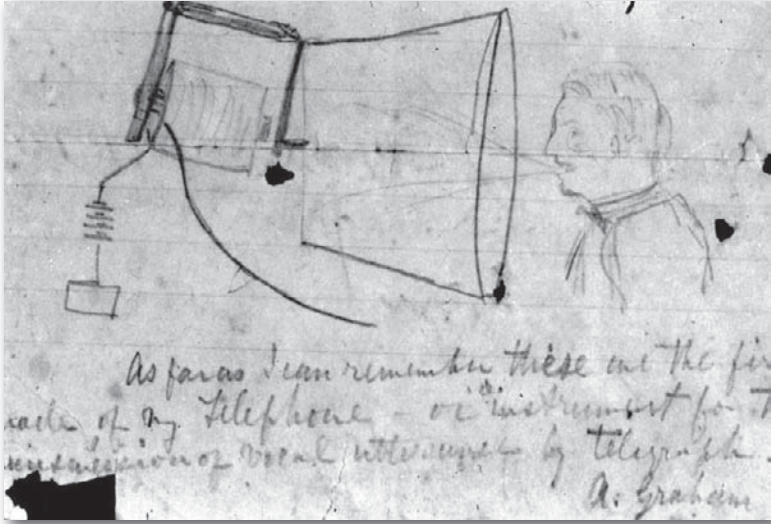 As far as I can remember these are the fir
made of my Telephone - or "instrument for t
ansmission of vocal utterances by telegraph.
A. Graham